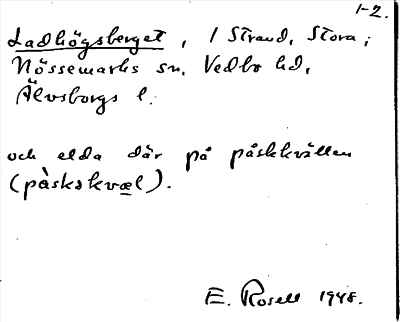 1-2.
Ladhögsberget, / Strand, Stora;
Nössemarks sn. Vedbo hd,
Älvsborgs l.
och elda där på påskkvällen
(påskskvæl).
E. Rosell 1948.